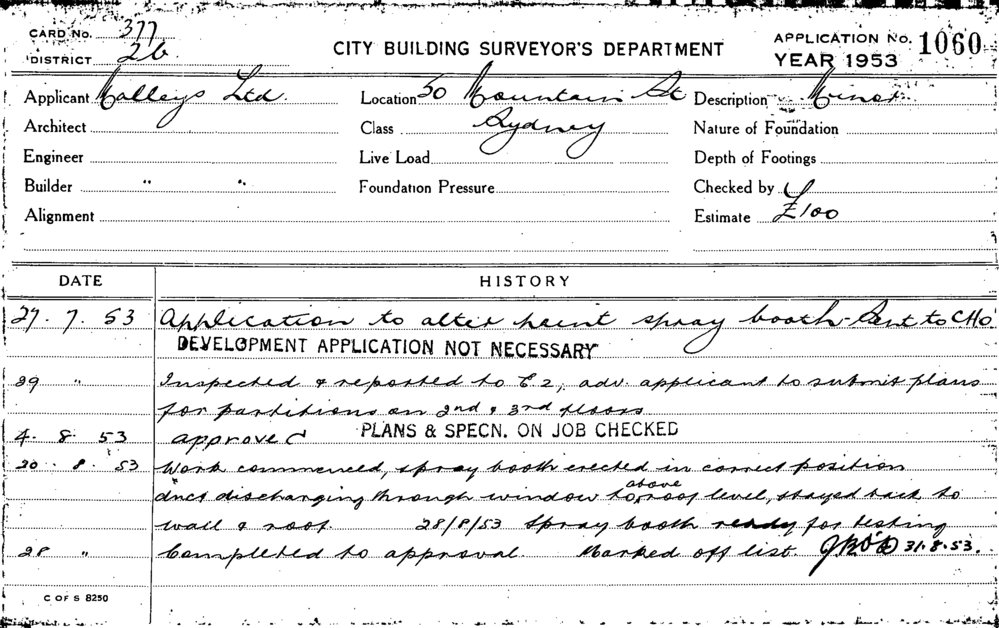 CARD No. 377
DISTRICT 2b
CITY BUILDING SURVEYOR'S DEPARTMENT
APPLICATION No. 1060
YEAR 1953
Applicant Malleys Ltd. Location 50 Mountain St Description Minor
Architect Class Sydney Nature of Foundation
Engineer Live Load Depth of Footings
Builder " " Foundation Pressure Checked by
Alignment Estimate £100
DATE HISTORY
27. 7. 53 Application to alter paint spray booth - Sent to CHO
DEVELOPMENT APPLICATION NOT NECESSARY
29 " Inspected & reported to E.2, adv. applicant to submit plans
for partitions on 2nd & 3rd floors
4. 8. 53 approved PLANS & SPECN. ON JOB CHECKED
20. 8. 53 Work commenced, spray booth erected in correct position
duct discharging through window to above roof level, stayed back to
wall & roof 28/8/53 Spray booth ready for testing
28 " Completed to approval. Marked off list 31.8.53.
C OF S 8250